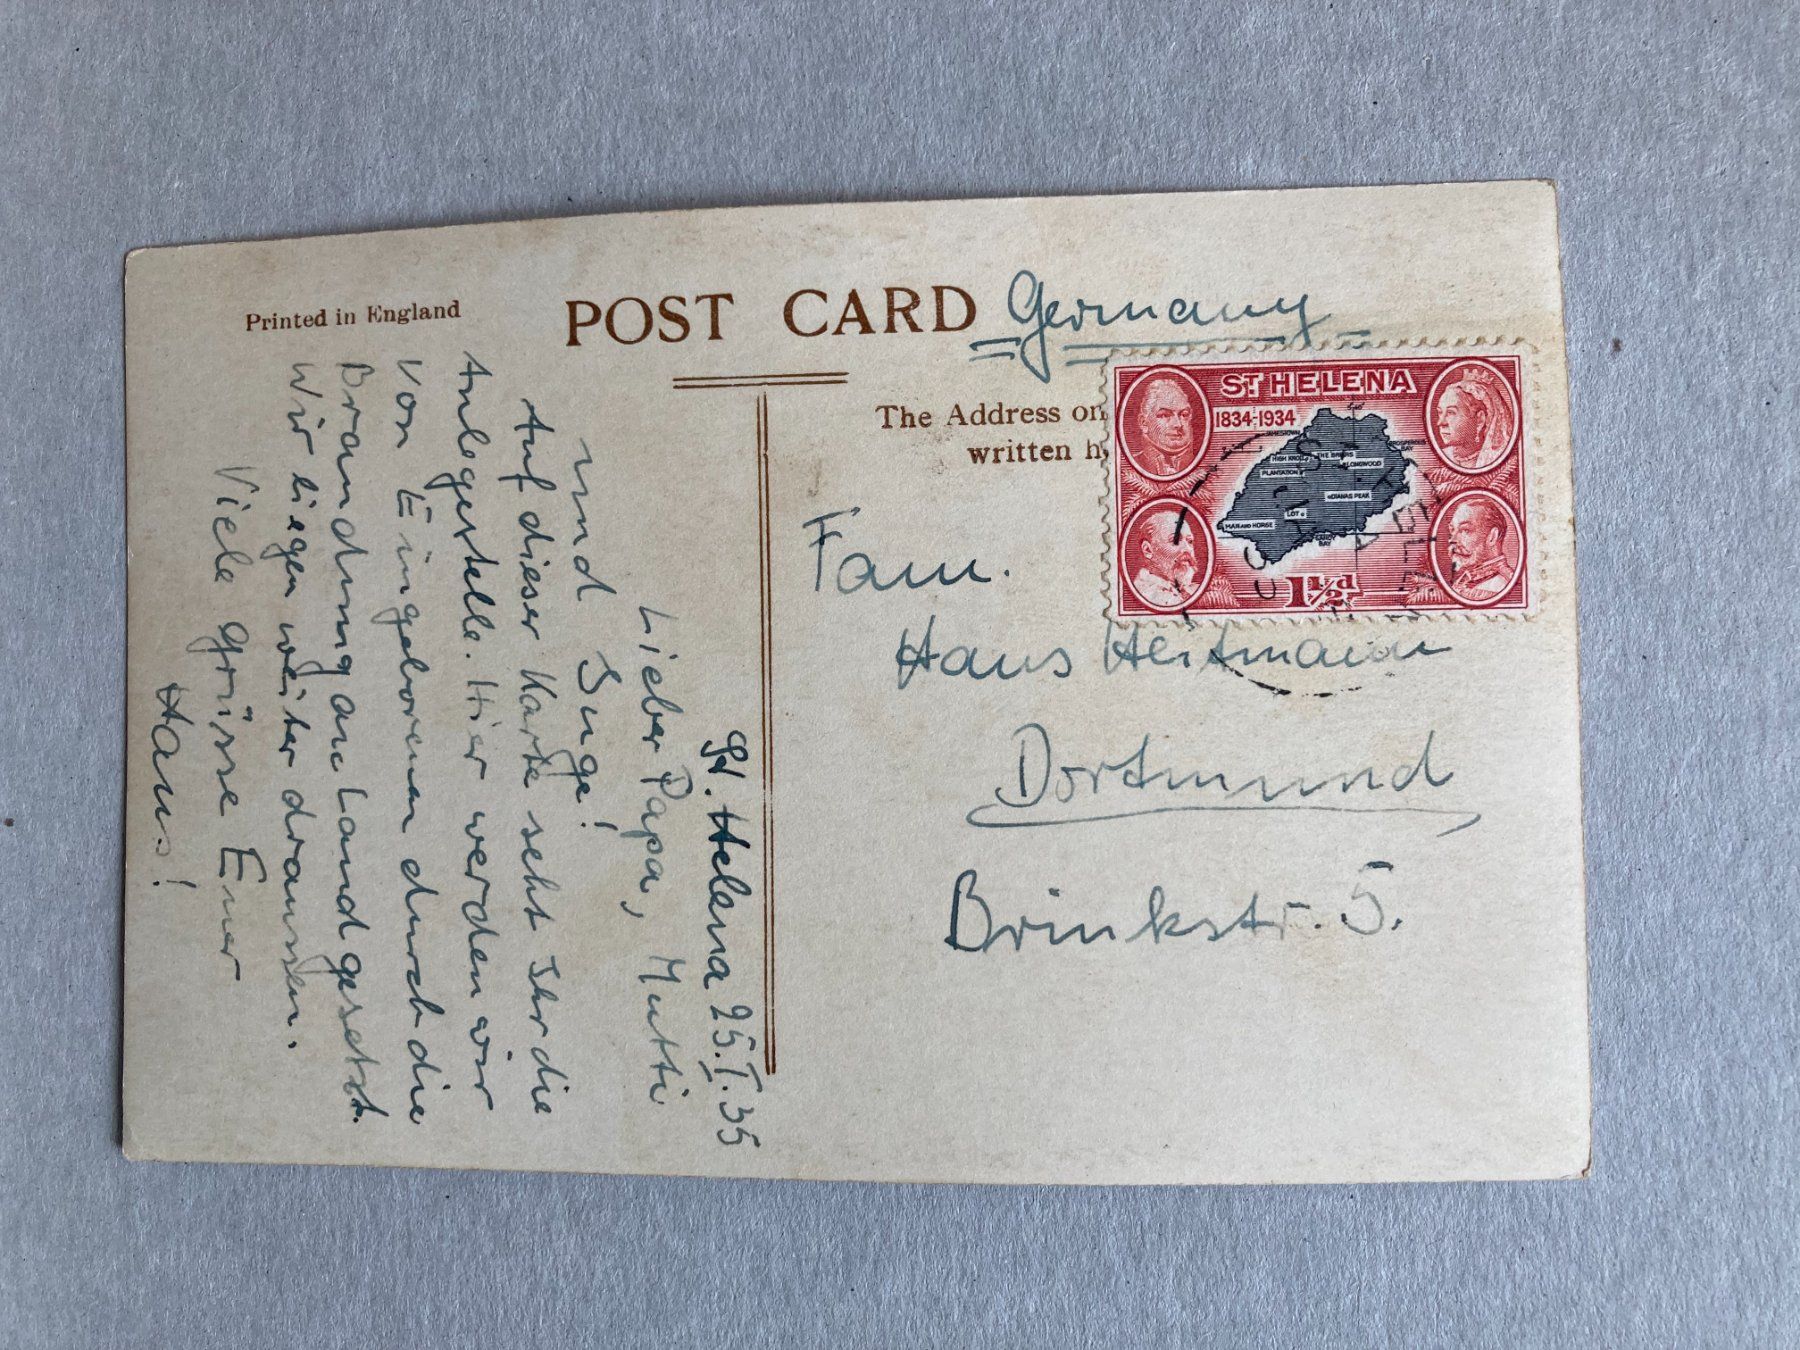 Printed in England
POST CARD
Germany
The Address on
written h
ST HELENA
1834-1934
JAMESTOWN
PROSPEROUS
BAY
HIGH KNOLL
THE BRIARS
LONGWOOD
PLANTATION
DIANAS PEAK
LOT
MAN AND HORSE
SANDY
BAY
1½d
Fam.
Hans Heitmann
Dortmund
Brinkstr. 5.
St. Helena 25.I.35
Lieber Papa, Mutti
und Inge!
Auf dieser Karte seht Ihr die
Anlegestelle. Hier werden wir
von Eingeborenen durch die
Brandung an Land gesetzt.
Wir liegen weiter draussen.
Viele Grüsse Euer
Hans!